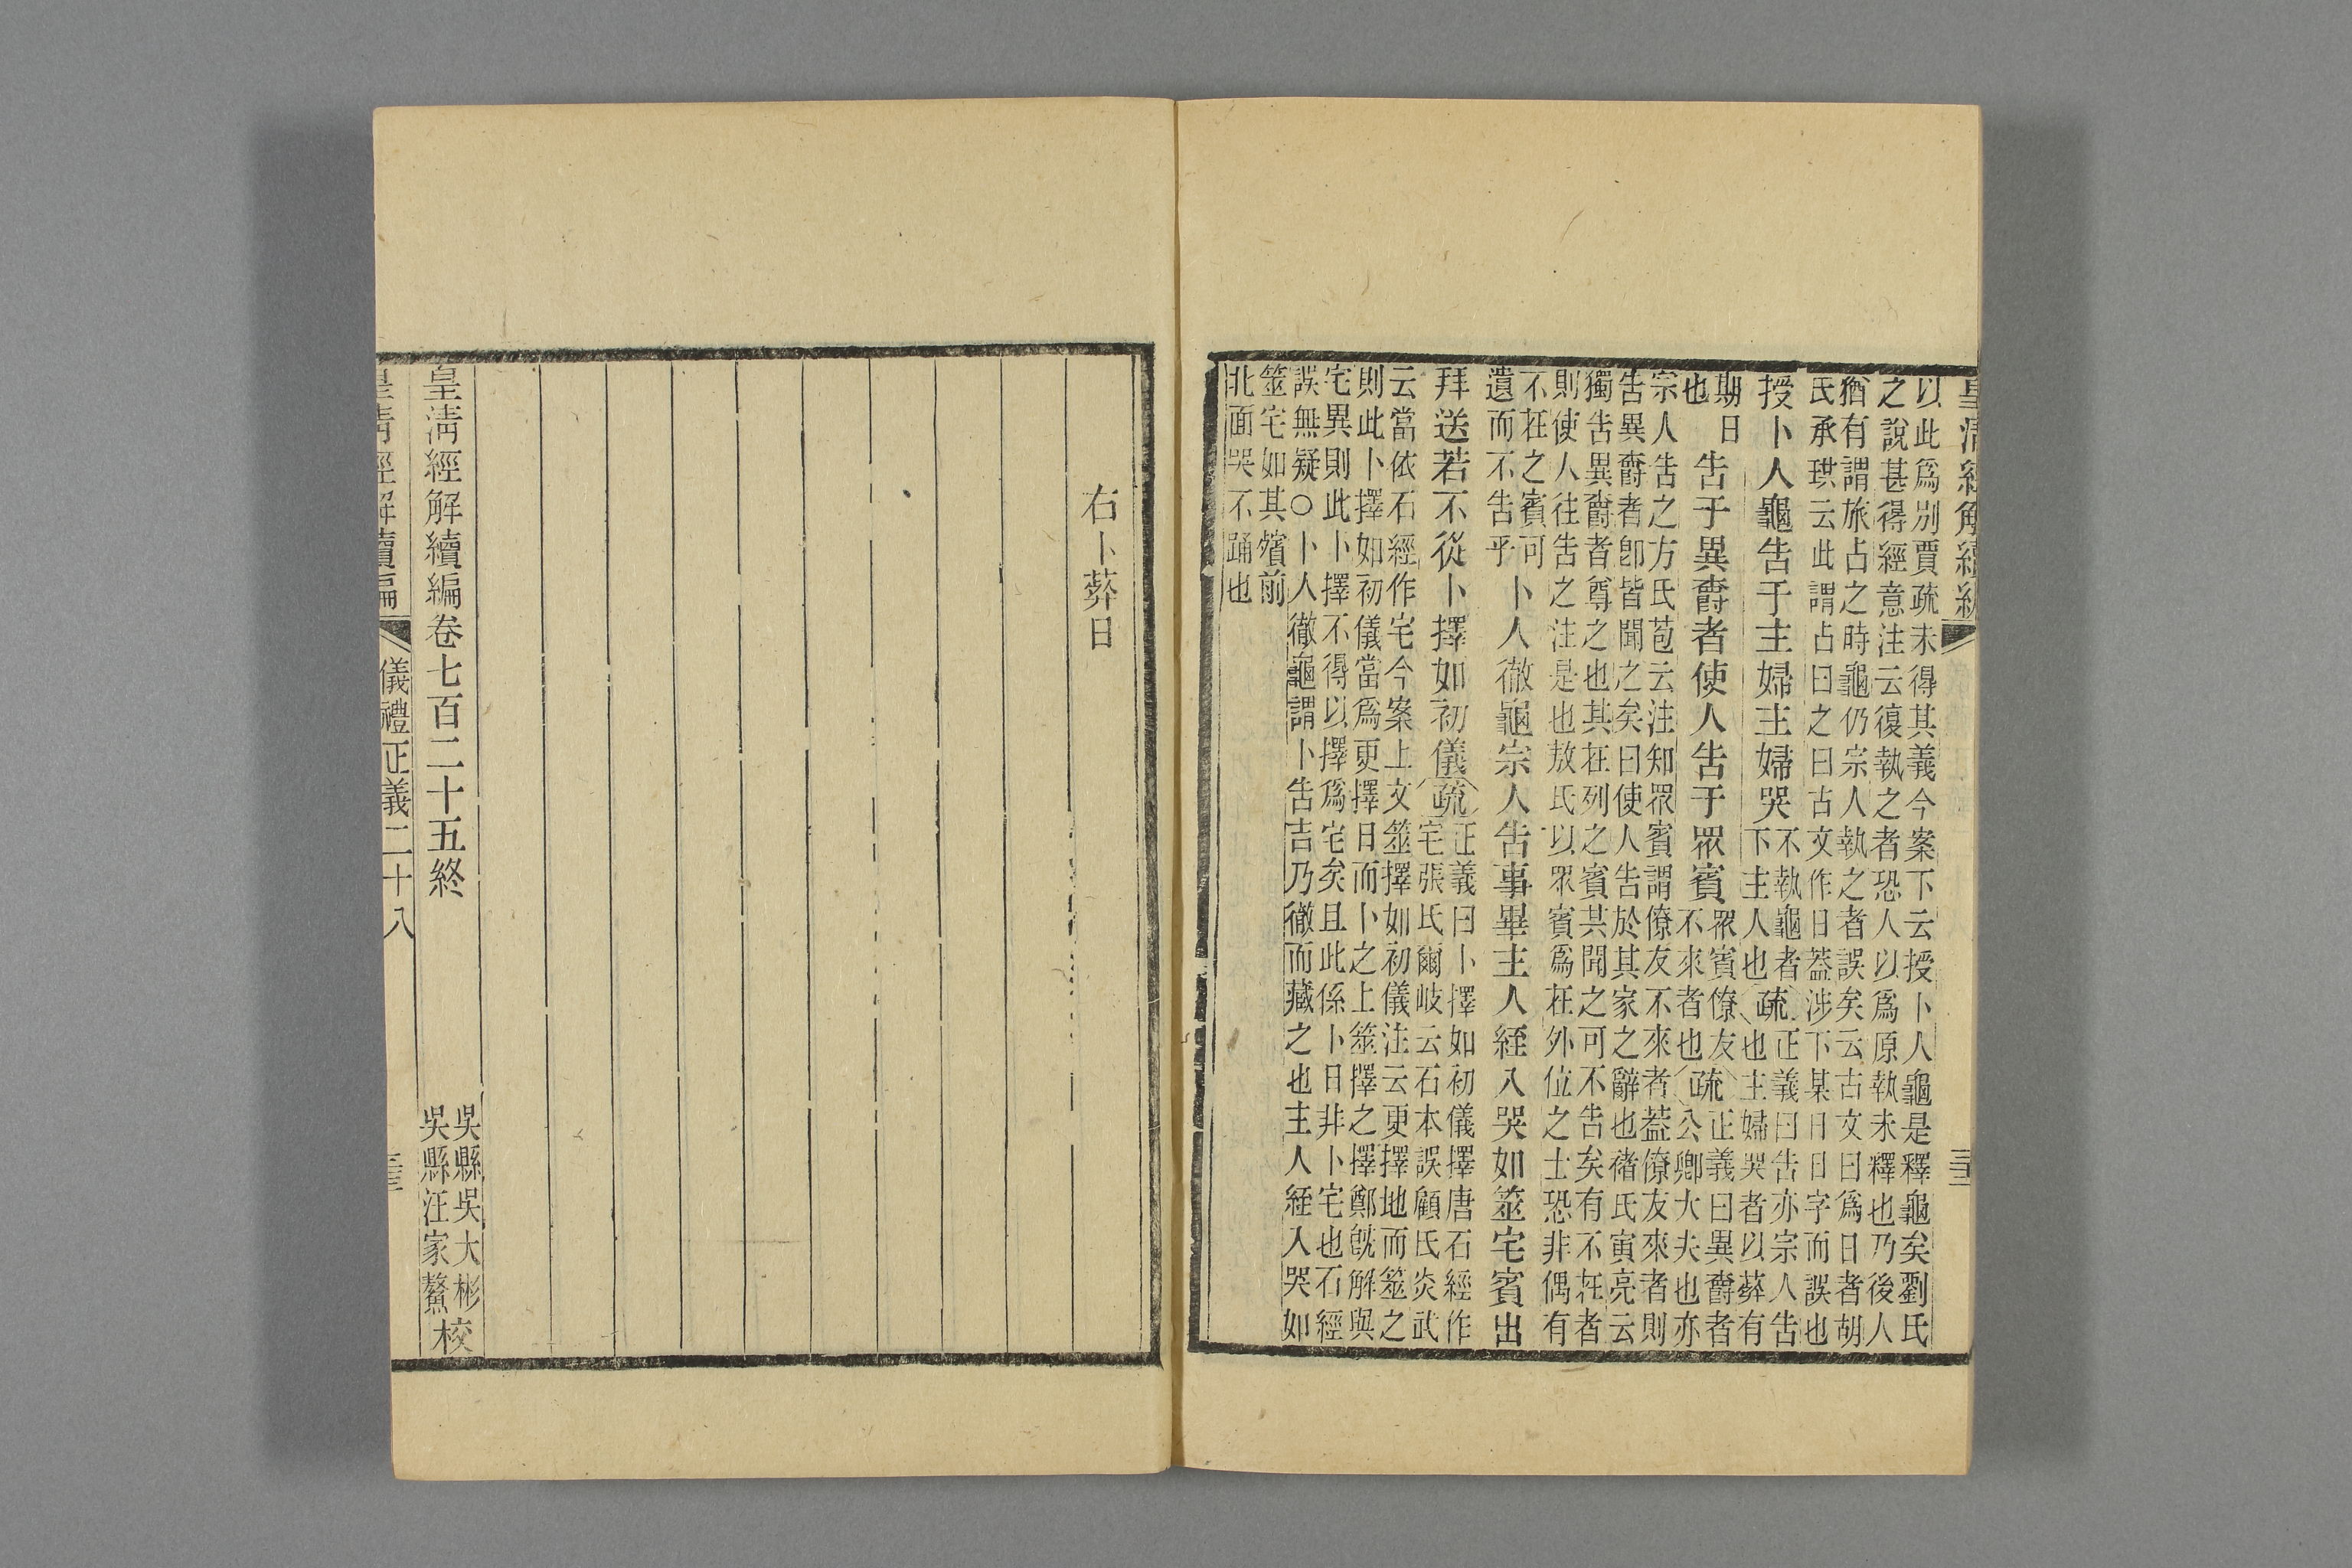 皇清經解續編
以此爲別賈疏未得其義今案下云授卜人龜是釋龜矣劉氏
之說甚得經意注云復執之者恐人以爲原執未釋也乃後人
猶有謂旅占之時龜仍宗人執之者誤矣云古文曰爲日者胡
氏承珙云此謂占曰之曰古文作日葢涉下某日日字而誤也
授卜人龜告于主婦主婦哭
不執龜者
下主人也
疏
正義曰告亦宗人告
也主婦哭者以葬有
期日
也
告于異爵者使人告于眾賓
眾賓僚友
不來者也
疏
正義曰異爵者
公卿大夫也亦
宗人告之方氏苞云注知眾賓謂僚友不來者葢僚友來者則
告異爵者卽皆聞之矣曰使人告於其家之辭也禇氏寅亮云
獨告異爵者尊之也其在列之賓共聞之可不告矣有不在者
則使人往告之注是也敖氏以眾賓爲在外位之士恐非偶有
不在之賓可
遺而不告乎
卜人徹龜宗人告事畢主人絰入哭如筮宅賓出
拜送若不從卜擇如初儀
疏
正義曰卜擇如初儀擇唐石經作
宅張氏爾岐云石本誤顧氏炎武
云當依石經作宅今案上文筮擇如初儀注云更擇地而筮之
則此卜擇如初儀當爲更擇日而卜之上筮擇之擇鄭旣解與
宅異則此卜擇不得以擇爲宅矣且此係卜日非卜宅也石經
誤無疑○卜人徹龜謂卜告吉乃徹而藏之也主人絰入哭如
筮宅如其殯前
北面哭不踊也
右卜葬日
皇清經解續編卷七百二十五終
吳縣吳大彬
吳縣汪家鰲
校
皇清經解續編
儀禮正義二十八